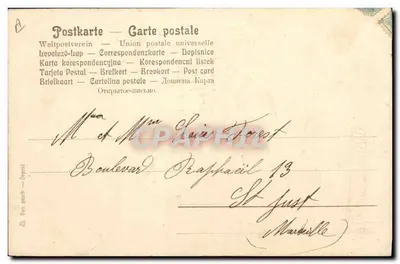 Postkarte — Carte postale
Weltpostverein — Union postale universelle
Levelező-Lap — Correspondenzkarte — Dopisnice
Karta korespondencyjna — Korespondenční lístek
Tarjeta Postal — Brefkort — Brevkort — Post card
Briefkaart — Cartolina postale — Дописна Карта
Открытое письмо.
M et Mme Louis Forest
Boulevard Raphaël 13
St Just
(Marseille)